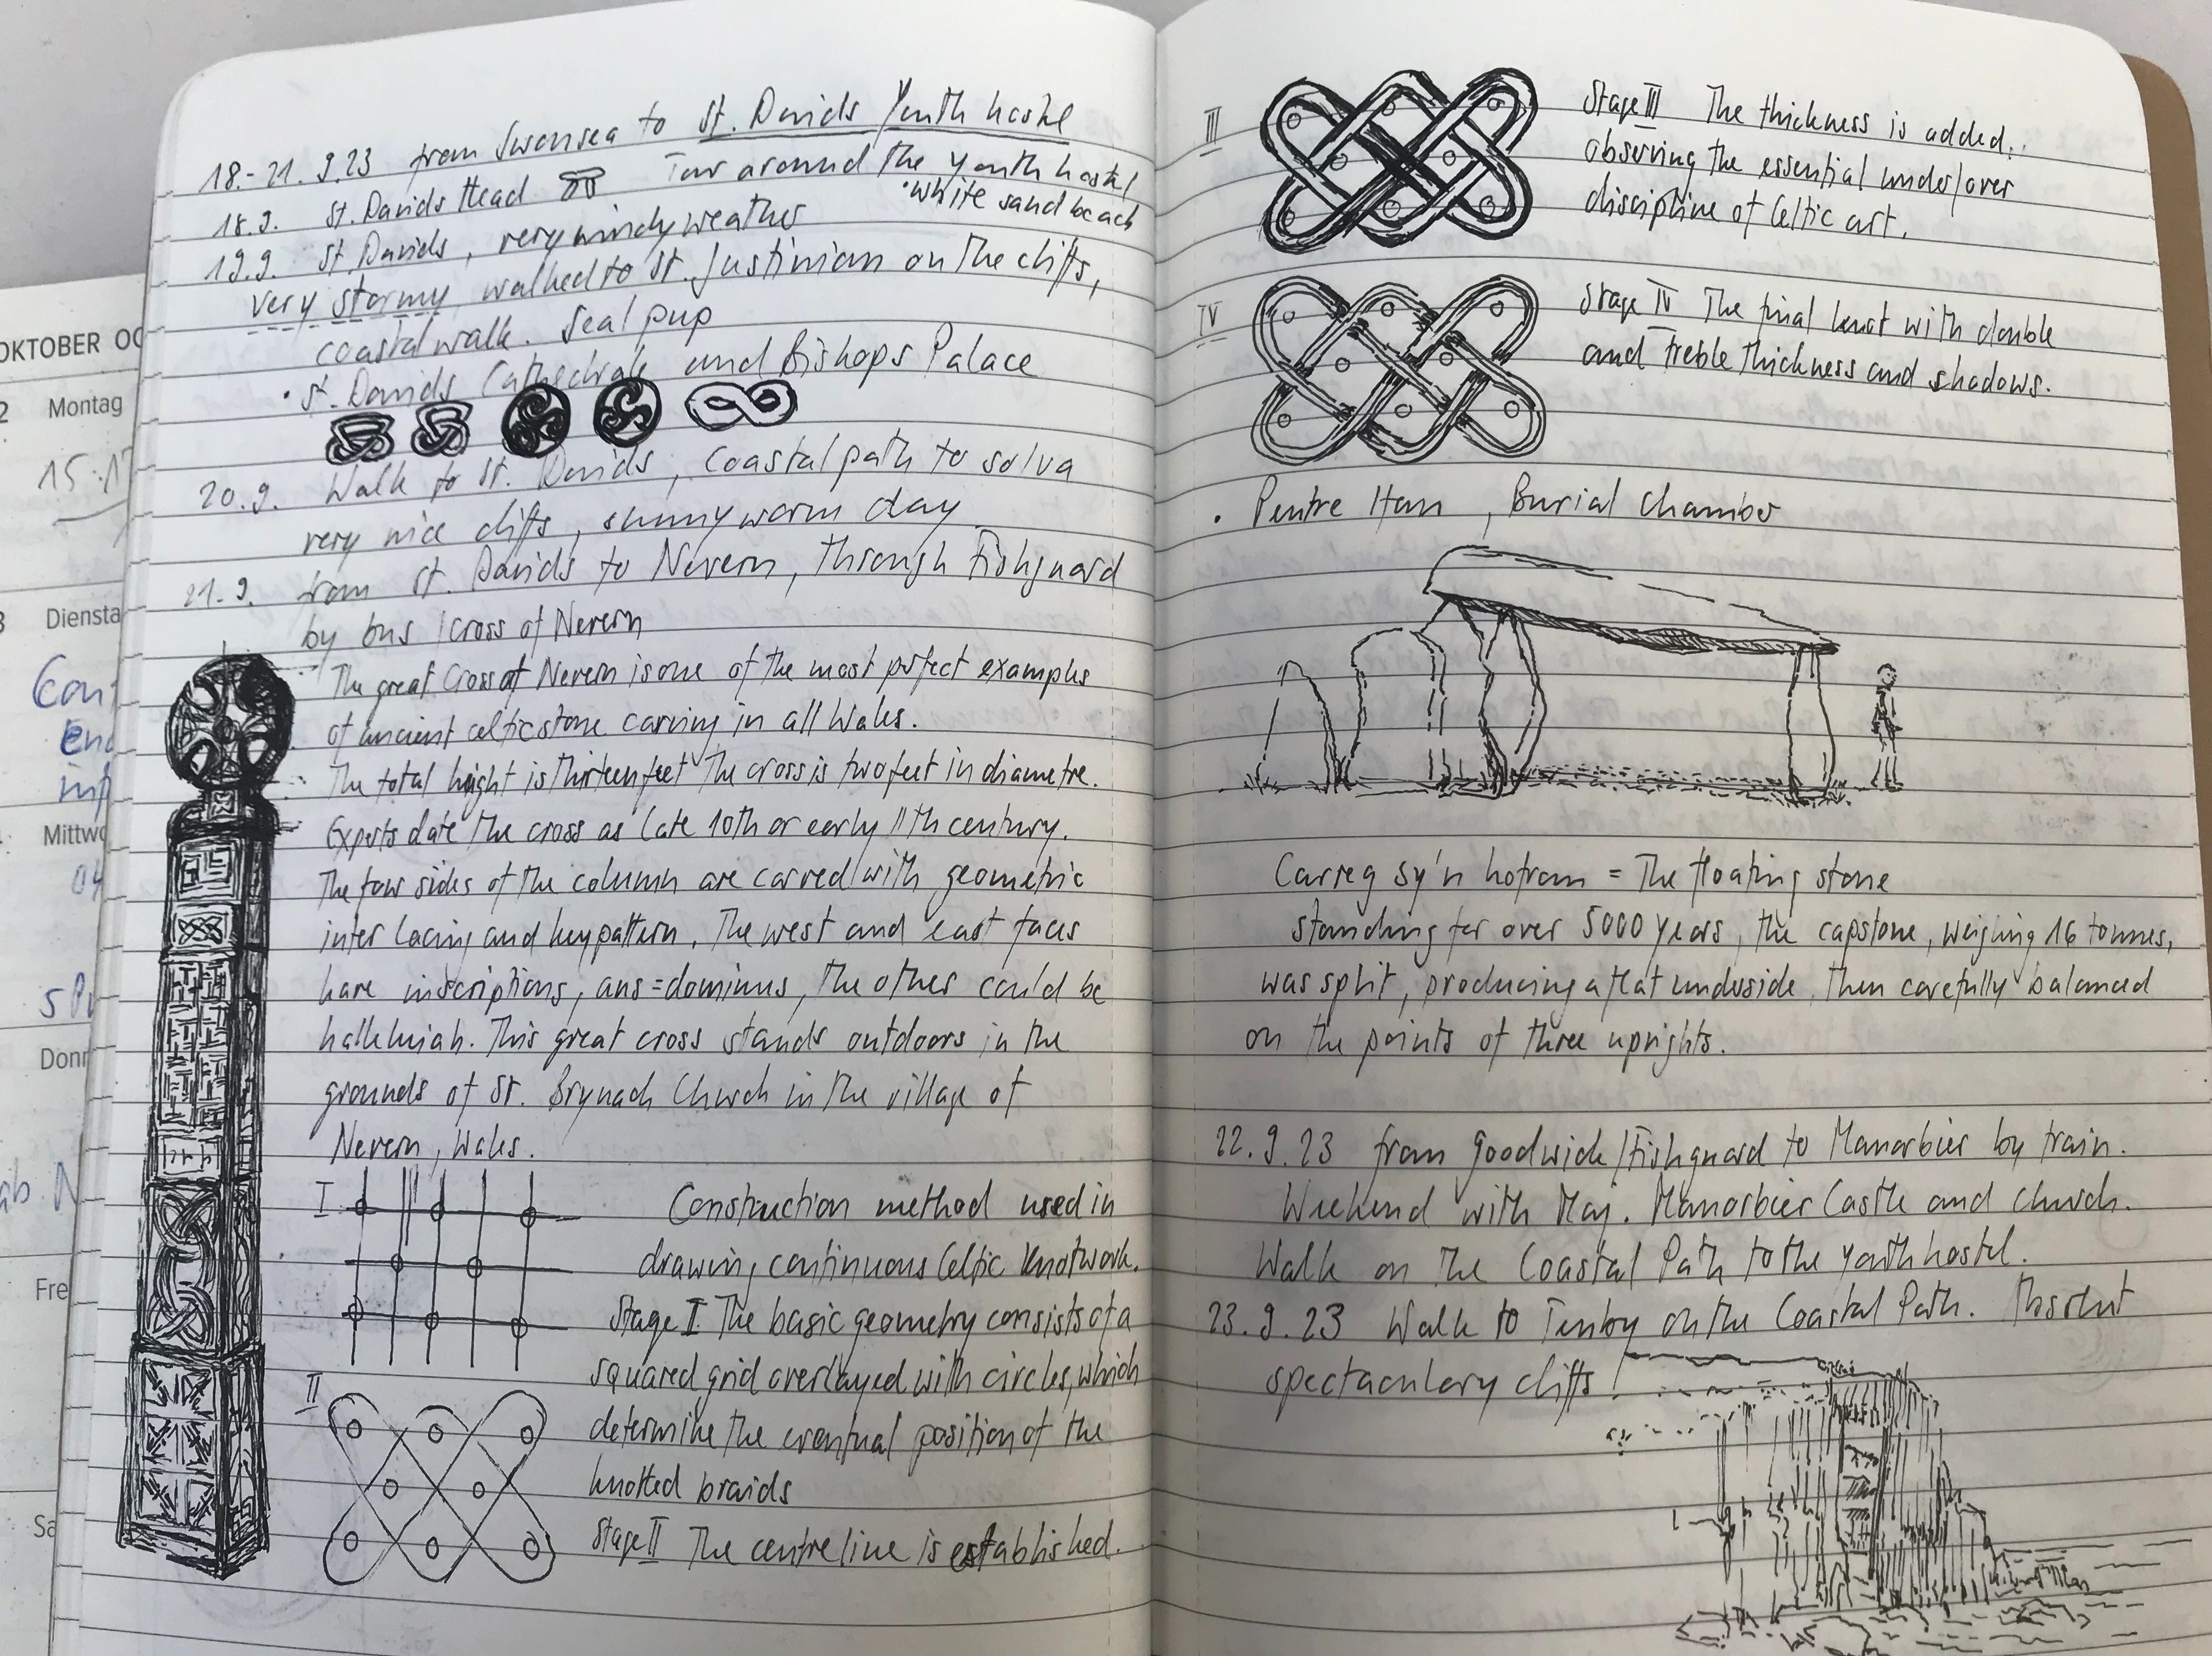 18.-21.9.23 from Swansea to St. Davids Youth hostel
18.9. St. Davids Head Tour around the Youth hostel
• white sand beach
19.9. St. Davids, very windy weather
very stormy walked to St. Justinian on the cliffs,
coastal walk. Seal pup
• St. Davids Cathedrale and Bishops Palace
20.9. Walk to St. Davids, Coastal path to Solva
very nice cliffs, sunny warm day
21.9. from St. Davids to Nevern, through Fishguard
by bus / Cross of Nevern
The great Cross of Nevern is one of the most perfect examples
of ancient celtic stone carving in all Wales.
The total height is thirteen feet The cross is two feet in diametre.
Experts date the cross as late 10th or early 11th century.
The four sides of the column are carved with geometric
interlacing and key pattern. The west and east faces
have inscriptions, ans = dominus, the other could be
halleluiah. This great cross stands outdoors in the
grounds of St. Brynach Church in the village of
Nevern, Wales.
I Construction method used in
drawing continuous Celtic Knotwork.
Stage I The basic geometry consists of a
squared grid overlayed with circles, which
II determine the eventual position of the
knotted braids
Stage II The centreline is established.
III Stage III The thickness is added,
observing the essential under/over
discipline of Celtic art.
IV Stage IV The final knot with double
and treble thickness and shadows.
• Pentre Burial Chamber
Carreg sy'n hofran = The floating stone
standing for over 5000 years, the capstone, weighing 16 tonnes,
was split, producing a flat underside, then carefully balanced
on the points of three uprights.
22.9.23 from Goodwick/Fishguard to Manorbier by train.
Weekend with May. Manorbier Castle and Church.
Walk on the Coastal Path to the Youth hostel.
23.9.23 Walk to Tenby on the Coastal Path. Absolut
spectaculary cliffs!
OKTOBER OC
2 Montag
15:17
3 Diensta
Mittwo
04
Donn
Fre
Sa